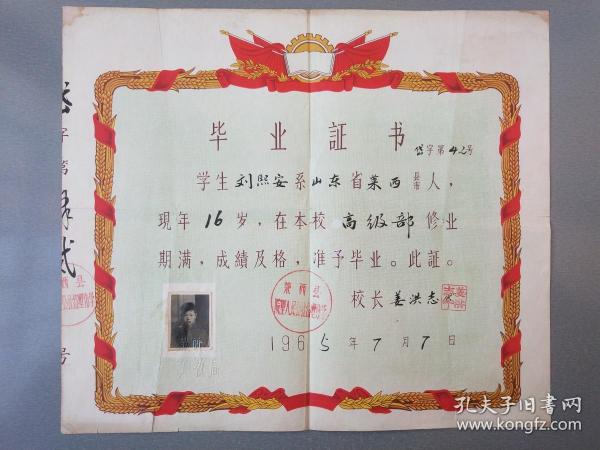 毕业証书
岱字第42号
学生刘熙安系山东省莱西县市人，
現年16岁，在本校高级部修业
期满，成績及格，准予毕业。此証。
校长姜洪志
莱西县
1965年7月7日
字第
号
孔夫子旧书网
www.kongfz.com